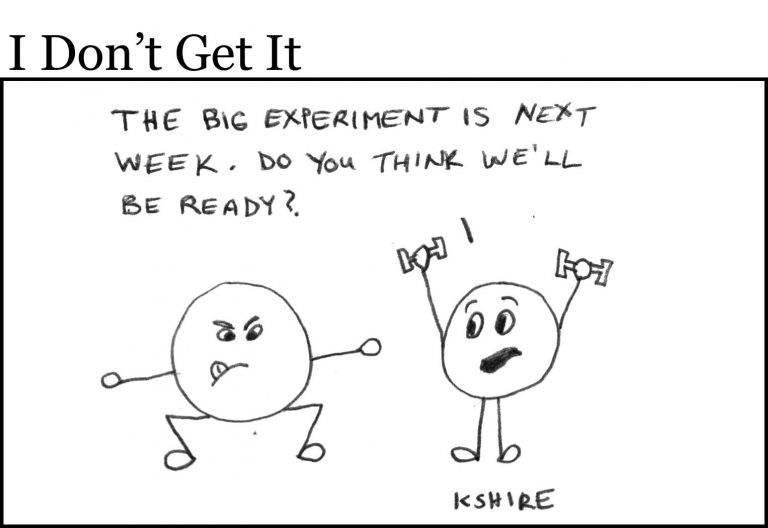 I Don’t Get It
THE BIG EXPERIMENT IS NEXT
WEEK. DO YOU THINK WE'LL
BE READY?
KSHIRE